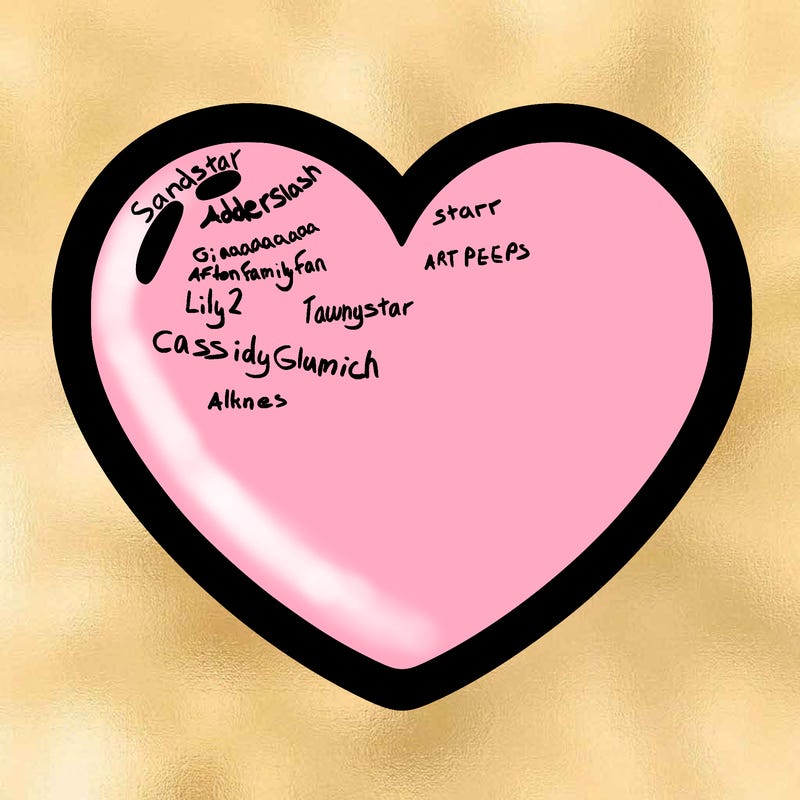 Sandstar
Adderslash
Giaaaaaaaaa
AFtonFamilyFan
Lily2
Tawnystar
CassidyGlumich
Alknes
starr
ART PEEPS